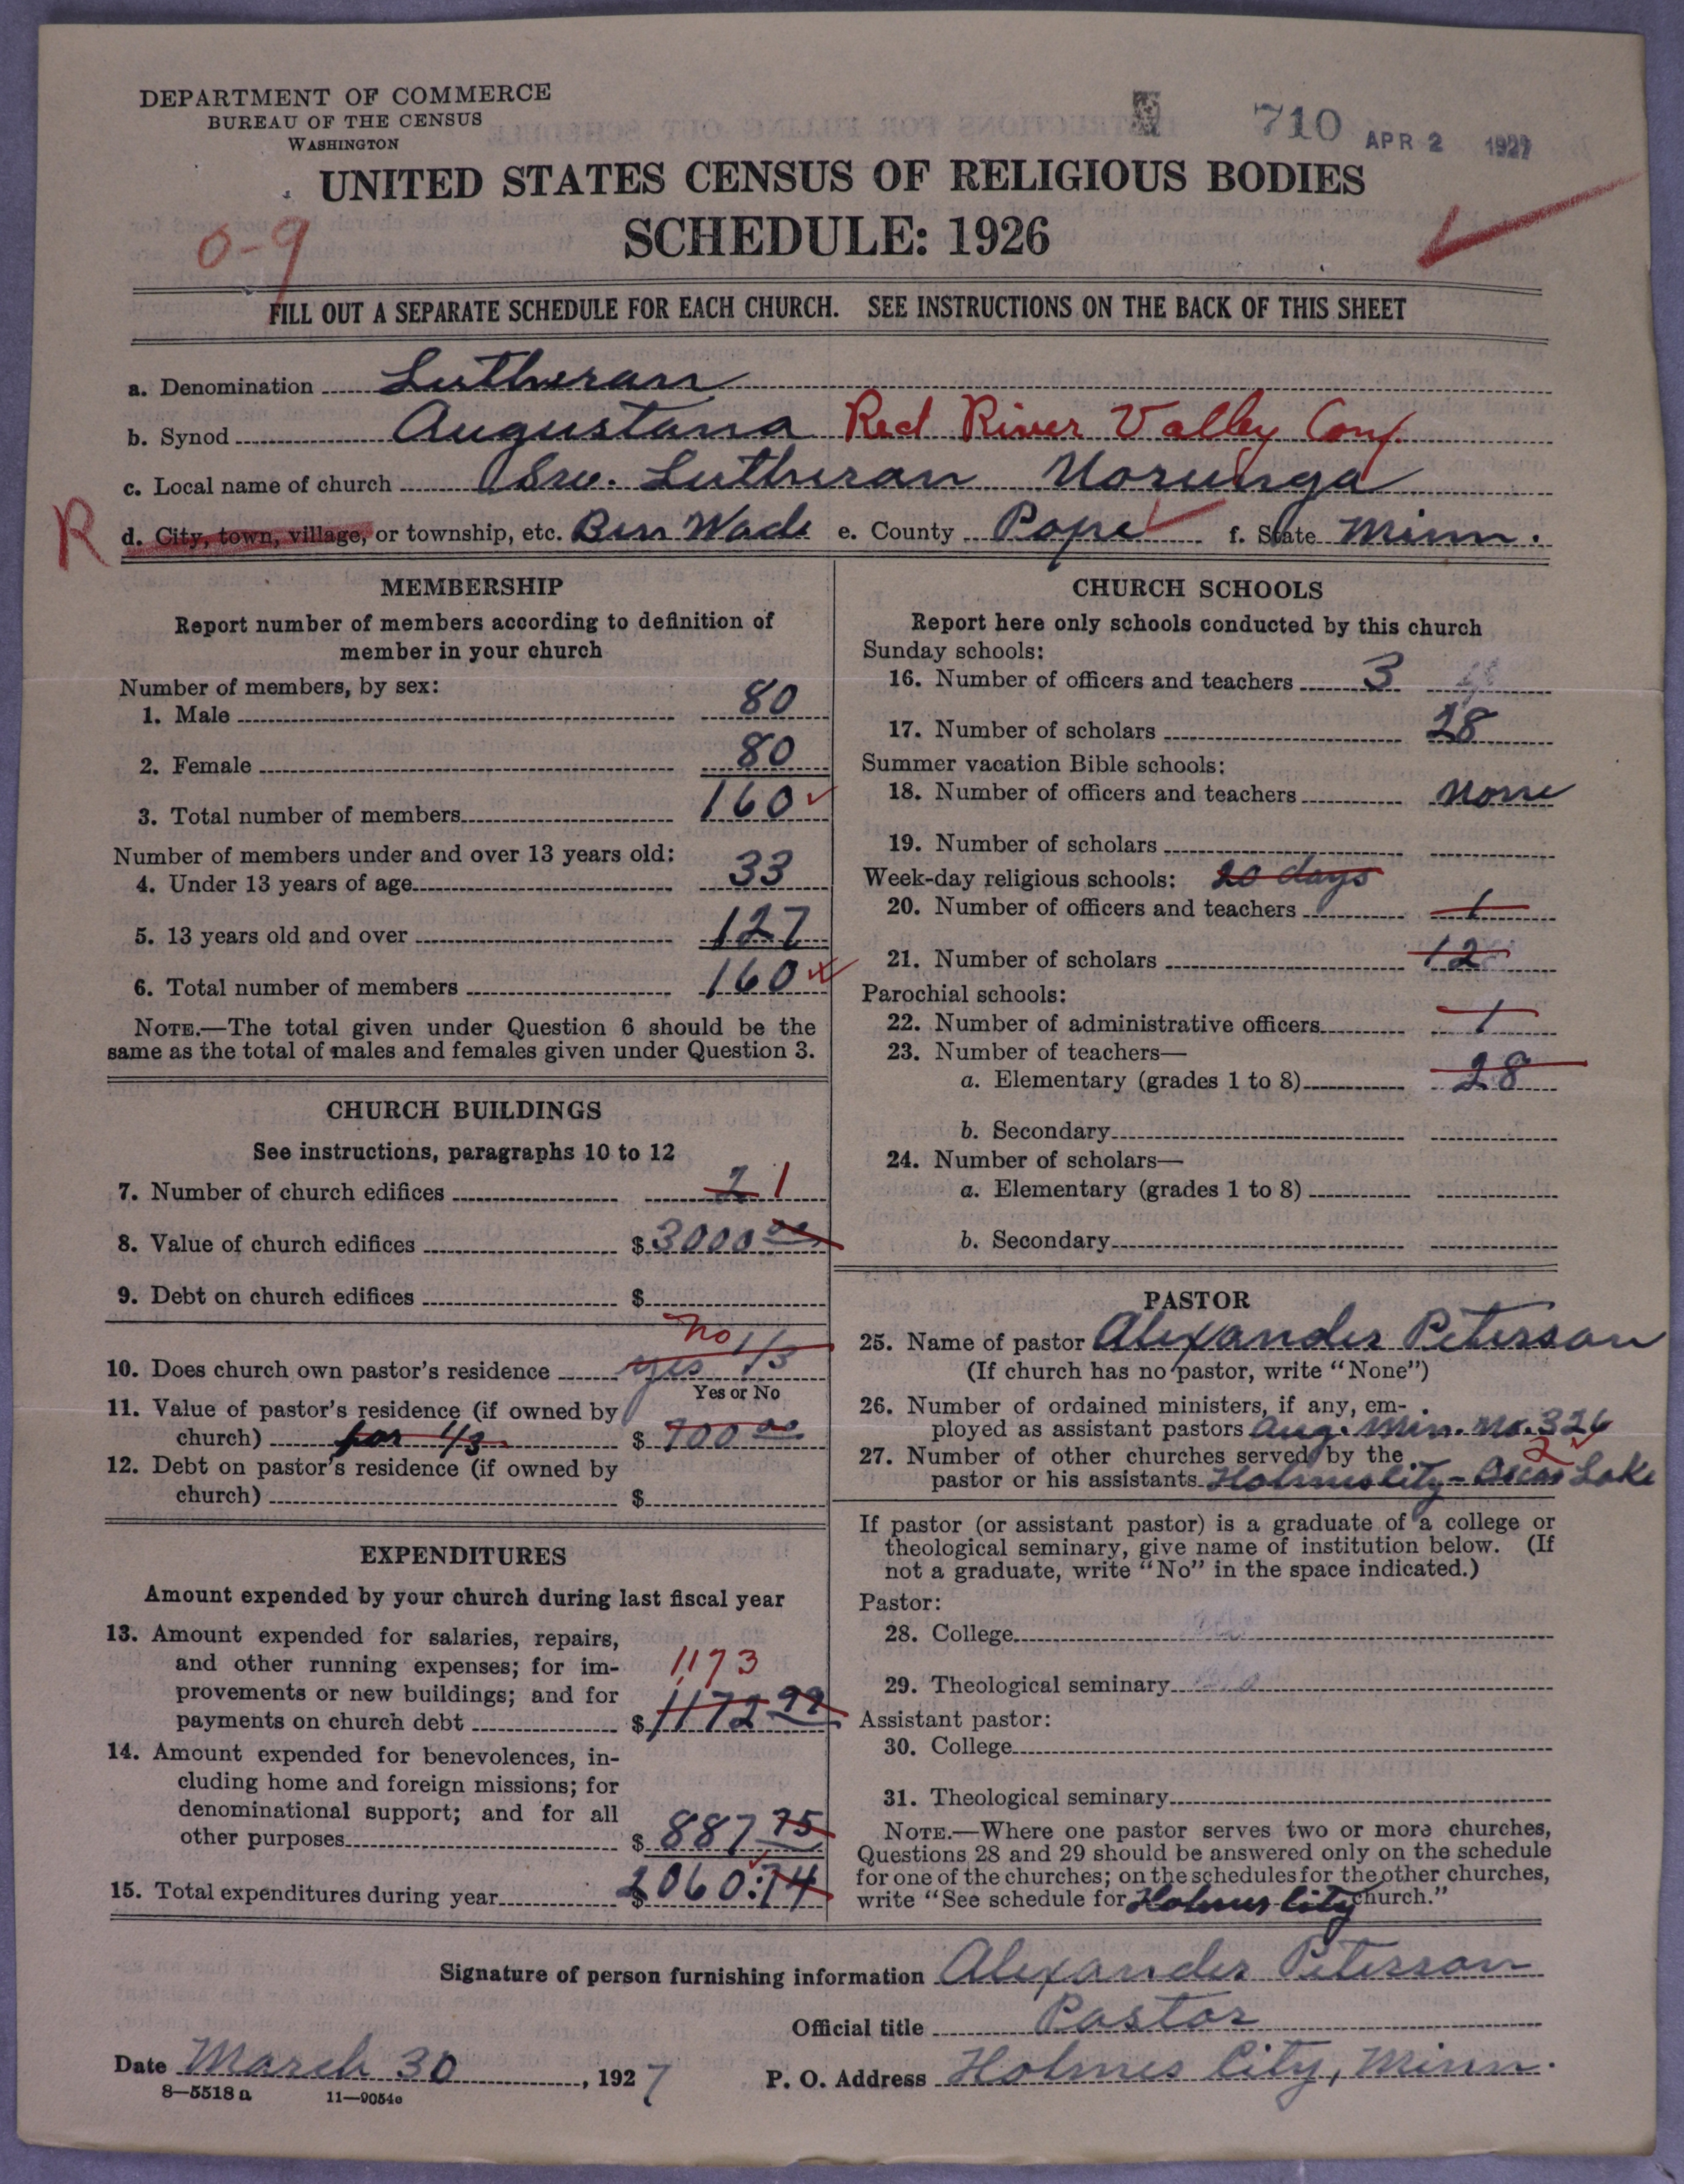 DEPARTMENT OF COMMERCE
BUREAU OF THE CENSUS
WASHINGTON
710 APR 2 1927
UNITED STATES CENSUS OF RELIGIOUS BODIES
SCHEDULE: 1926
0-9
FILL OUT A SEPARATE SCHEDULE FOR EACH CHURCH. SEE INSTRUCTIONS ON THE BACK OF THIS SHEET
a. Denomination Lutheran
b. Synod Augustana Red River Valley Conf.
c. Local name of church Sw. Lutheran Norunga
R d. City, town, village, or township, etc. Ben Wade e. County Pope f. State Minn.
MEMBERSHIP
Report number of members according to definition of
member in your church
Number of members, by sex:
1. Male 80
2. Female 80
3. Total number of members 160
Number of members under and over 13 years old:
4. Under 13 years of age 33
5. 13 years old and over 127
6. Total number of members 160
NOTE.—The total given under Question 6 should be the
same as the total of males and females given under Question 3.
CHURCH BUILDINGS
See instructions, paragraphs 10 to 12
7. Number of church edifices 2 1
8. Value of church edifices $ 3000 00
9. Debt on church edifices $
No
10. Does church own pastor's residence yes 1/3
Yes or No
11. Value of pastor's residence (if owned by
church) for 1/3 $ 700 00
12. Debt on pastor's residence (if owned by
church) $
EXPENDITURES
Amount expended by your church during last fiscal year
13. Amount expended for salaries, repairs,
and other running expenses; for im-
1173
provements or new buildings; and for
payments on church debt $ 1172 99
14. Amount expended for benevolences, in-
cluding home and foreign missions; for
denominational support; and for all
other purposes $ 887 75
15. Total expenditures during year $ 2060:74
CHURCH SCHOOLS
Report here only schools conducted by this church
Sunday schools:
16. Number of officers and teachers 3
17. Number of scholars 28
Summer vacation Bible schools:
18. Number of officers and teachers None
19. Number of scholars
Week-day religious schools: 20 days
20. Number of officers and teachers 1
21. Number of scholars 12
Parochial schools:
22. Number of administrative officers 1
23. Number of teachers—
a. Elementary (grades 1 to 8) 28
b. Secondary
24. Number of scholars—
a. Elementary (grades 1 to 8)
b. Secondary
PASTOR
25. Name of pastor Alexander Peterson
(If church has no pastor, write "None")
26. Number of ordained ministers, if any, em-
ployed as assistant pastors Aug. Min. No. 326
27. Number of other churches served by the 2
pastor or his assistants Holmes City - Oscar Lake
If pastor (or assistant pastor) is a graduate of a college or
theological seminary, give name of institution below. (If
not a graduate, write "No" in the space indicated.)
Pastor:
28. College
29. Theological seminary
Assistant pastor:
30. College
31. Theological seminary
NOTE.—Where one pastor serves two or more churches,
Questions 28 and 29 should be answered only on the schedule
for one of the churches; on the schedules for the other churches,
write "See schedule for Holmes City church."
Signature of person furnishing information Alexander Peterson
Official title Pastor
Date March 30, 1927 P. O. Address Holmes City, Minn.
8—5518 a 11—9054c